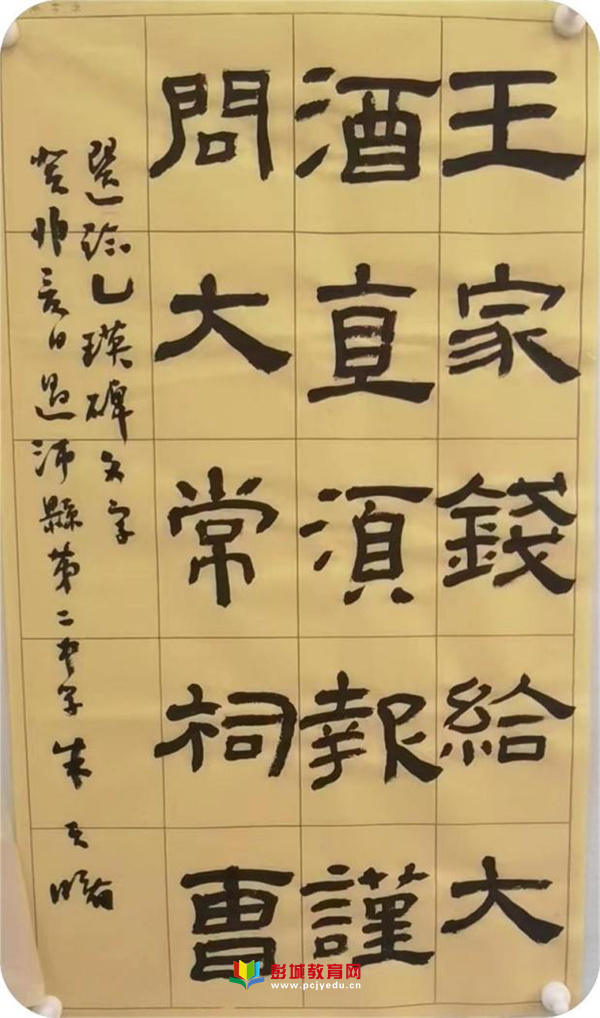 王家錢給大
酒直須報謹
問大常祠曹
選臨乙瑛碑文字
癸卯夏日過沛縣第二中學 朱天
彭城教育网
www.pcjyedu.cn